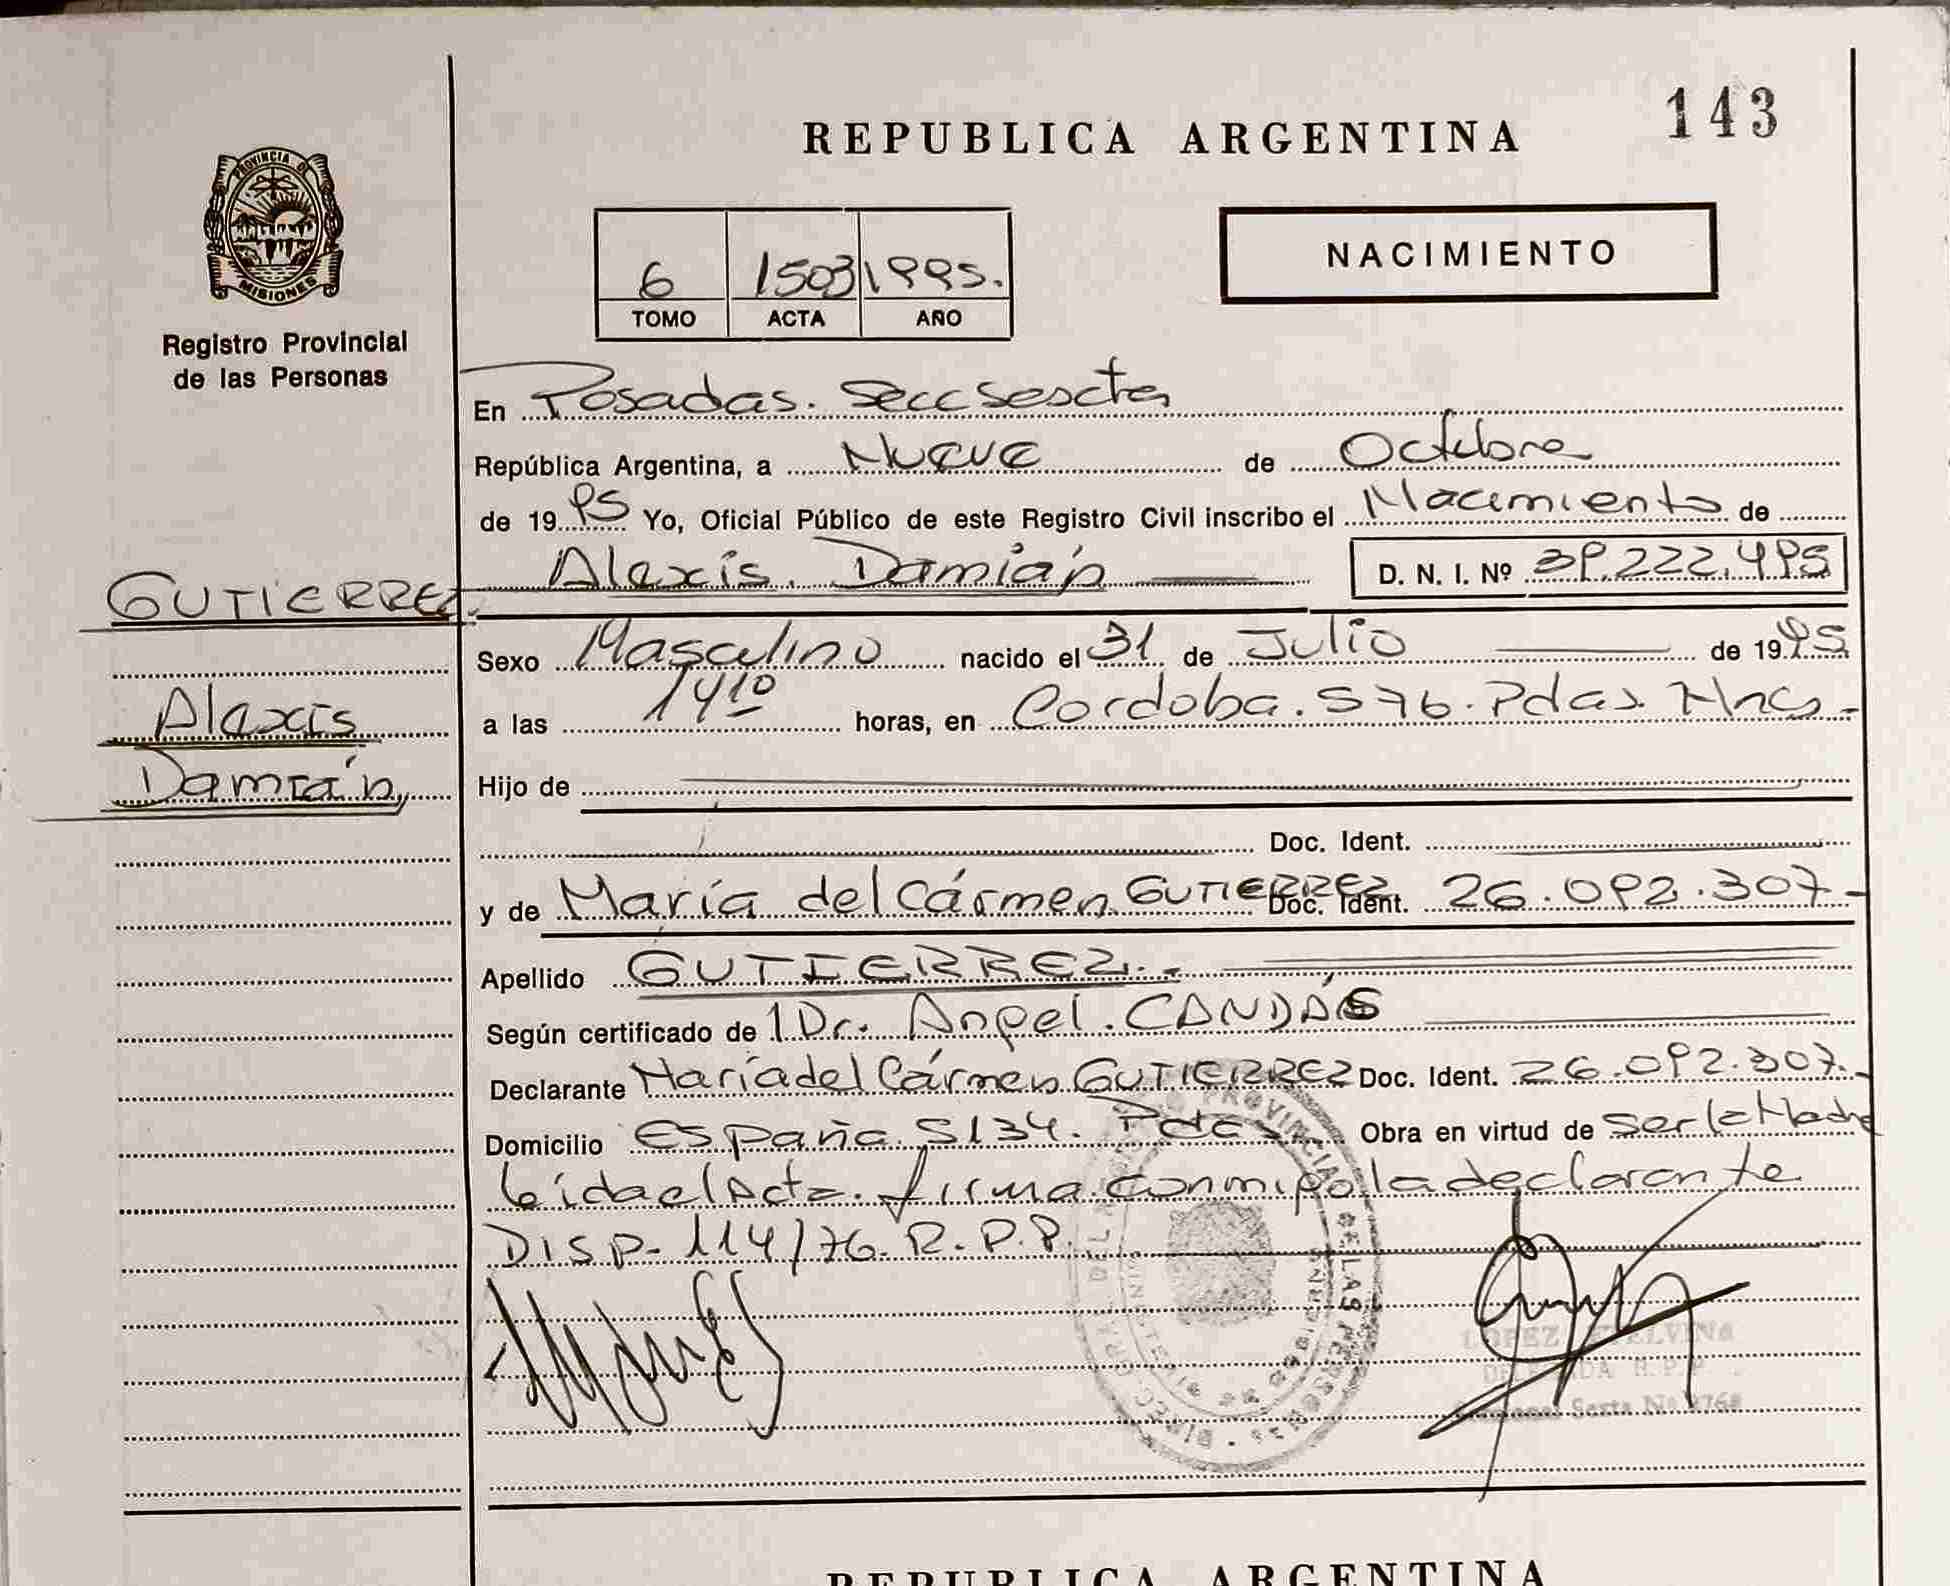 143
REPUBLICA ARGENTINA
PROVINCIA DE
MISIONES
Registro Provincial
de las Personas
6 1503 1995.
TOMO ACTA AÑO
NACIMIENTO
En Posadas. Secc Sescta
República Argentina, a Nueve de Octubre
de 1995 Yo, Oficial Público de este Registro Civil inscribo el Nacimiento de
Alexis. Damián D. N. I. Nº 39.222.495
GUTIERREZ.
Alexis
Damián,
Sexo Masculino nacido el 31 de Julio de 1995
a las 14 10 horas, en Cordoba. 576. Pdas. Mnes -
Hijo de
Doc. Ident.
y de María del Cármen GUTIERREZ Doc. Ident. 26.092.307-
Apellido GUTIERREZ.-
Según certificado de Dr. Angel. CANDÁS
Declarante María del Cármen GUTIERREZ Doc. Ident. 26.092.307.-
Domicilio España 5134. Pdas. Obra en virtud de ser la Madre
Leida el Acta. firma conmigo la declarante
DISP. 114/76. R.P.P.
PROVINCIAL DE LAS PERSONAS
LOPEZ ETELVINA
DELEGADA R.P.P.
Seccional Sexta Nº
REPUBLICA ARGENTINA